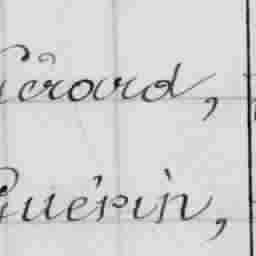 Gérard,
Guérin,